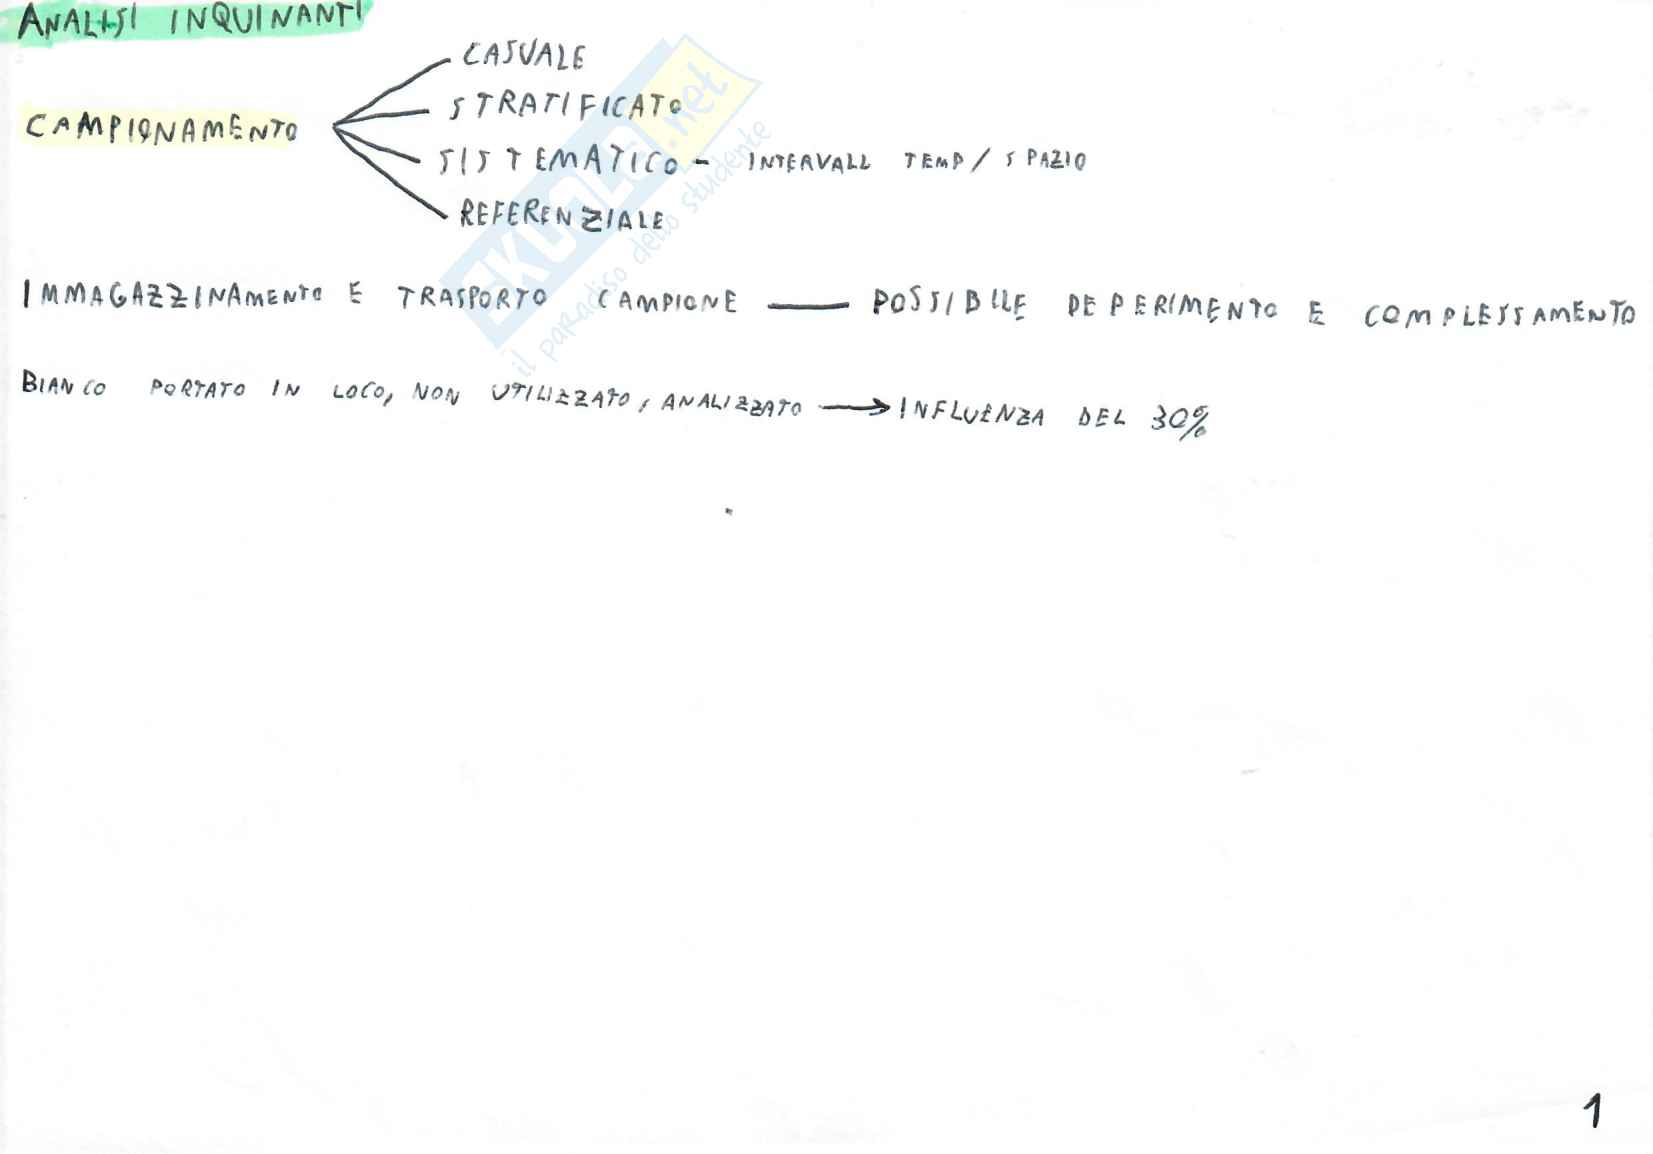 ANALISI INQUINANTI
CASUALE
STRATIFICATO
CAMPIONAMENTO
SISTEMATICO - INTERVALL TEMP/SPAZIO
REFERENZIALE
IMMAGAZZINAMENTO E TRASPORTO CAMPIONE — POSSIBILE DEPERIMENTO E COMPLESSAMENTO
BIANCO PORTATO IN LOCO, NON UTILIZZATO, ANALIZZATO → INFLUENZA DEL 30%
SKUOLA.net
il paradiso dello studente
1